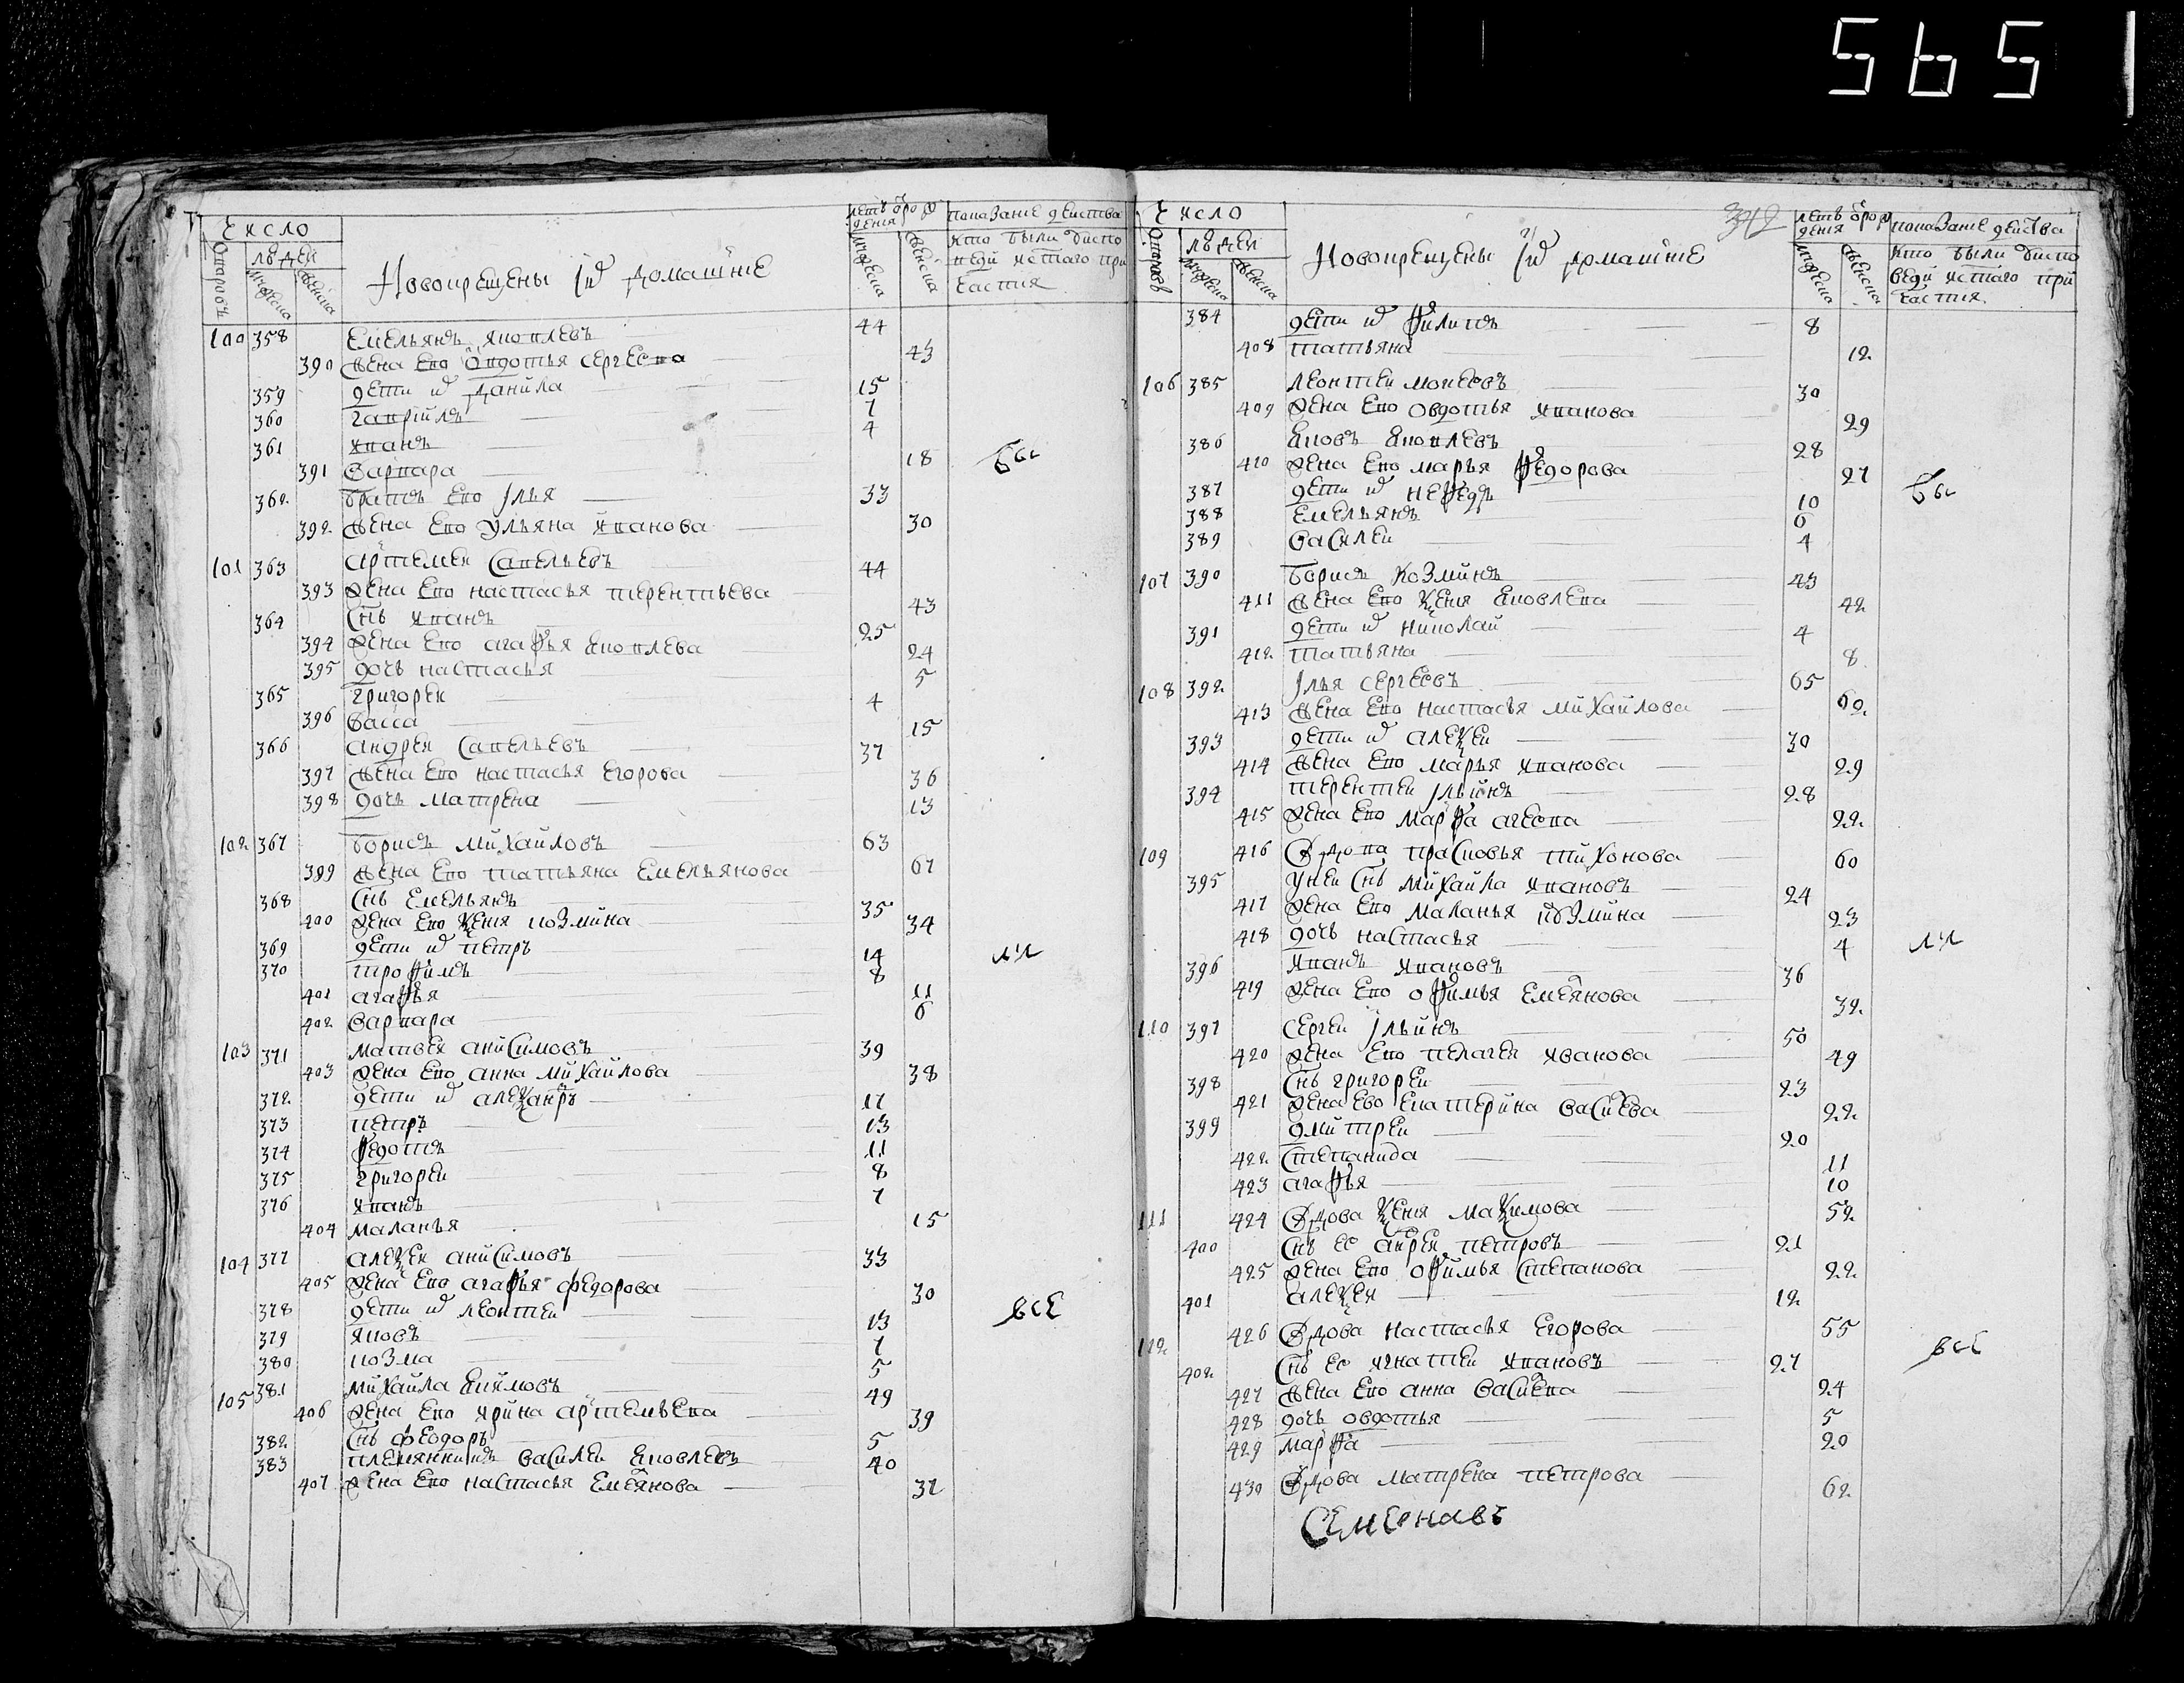 565
число
людей
Новокрещены їи домашние
летъ о рождения
показание действа
кто были у исповеди и святаго причастия
100 358 Емельянъ Яковлевъ 44
390 жена ево Овдотья Сергеева 43
359 дети ихъ Данила 15
360 Гаврїилъ 7
361 Иванъ 4
391 Варвара 18 бы
362 братъ ево Илья 33
392 жена ево Ульяна Иванова 30
101 363 Артемей Савельевъ 44
393 жена ево Настасья Терентьева 43
364 снъ Иванъ 25
394 жена ево Агафья Яковлева 24
395 дочь Настасья 5
365 Григорей 4
396 Васса 15
366 Андрей Савельевъ 37
397 жена ево Настасья Егорова 36
398 дочь Матрена 13
102 367 Борисъ Михайловъ 63
399 жена ево Татьяна Емельянова 67
368 снъ Емельянъ 35
400 жена ево Ѯенья Козмина 34
369 дети ихъ Петръ 14 ли
370 Трофимъ 8
401 Агафья 11
402 Варвара 6
103 371 Матвей Анисимовъ 39
403 жена ево Анна Михайлова 38
372 дети ихъ Алеѯандръ 17
373 Петръ 13
374 Федотъ 11
375 Григорей 8
376 Иванъ 7
404 Маланья 15
104 377 Алеѯей Анисимовъ 33
405 жена ево Агафья Федорова 30
378 дети ихъ Леонтей 13 все
379 Яковъ 7
380 Козма 5
105 381 Михайла Екимовъ 49
406 жена ево Ирина Артемьева 39
382 снъ Феодоръ 5
383 племянникъ Василей Яковлевъ 40
407 жена ево Настасья Емеянова 37
число
людей
Новокрещены їи домашние
летъ о рождения
показание действа
кто были у исповеди и святаго причастия
384 дети ихъ Филипъ 8
408 Татьяна 12
106 385 Леонтей Мокеевъ 30
409 жена ево Овдотья Иванова 29
386 Яковъ Яковлевъ 28
410 жена ево Марья Федорова 27
387 дети ихъ Нефедъ 10 бы
388 Емельянъ 6
389 Василей 4
107 390 Борисъ Козминъ 43
411 жена ево Ѯенья Яковлева 42
391 дети ихъ Николай 4
412 Татьяна 8
108 392 Илья Сергеевъ 65
413 жена ево Настасья Михайлова 62
393 дети ихъ Алеѯей 30
414 жена ево Марья Иванова 29
394 Терентей Ильинъ 28
415 жена ево Марфа Агеева 22
109 416 Вдова Прасковья Тихонова 60
395 у ней снъ Михайла Ивановъ 24
417 жена ево Маланья Козмина 23
418 дочь Настасья 4 ли
396 Иванъ Ивановъ 36
419 жена ево Офимья Емеянова 32
110 397 Сергей Ильинъ 50
420 жена ево Пелагея Иванова 49
398 снъ Григорей 23
421 жена ево Екатерина Василева 22
399 Дмитрей 20
422 Степанида 11
423 Агафья 10
111 424 Вдова Ѯенья Маѯимова 52
400 снъ ее Андрей Петровъ 21
425 жена ево Офимья Степанова 22
401 Алеѯей 12
112 426 Вдова Настасья Егорова 55
402 снъ ее Игнатей Ивановъ 27 все
427 жена ево Анна Василева 24
428 дочь Овдотья 5
429 Марфа 20
430 Вдова Матрена Петрова 62
Семенавъ